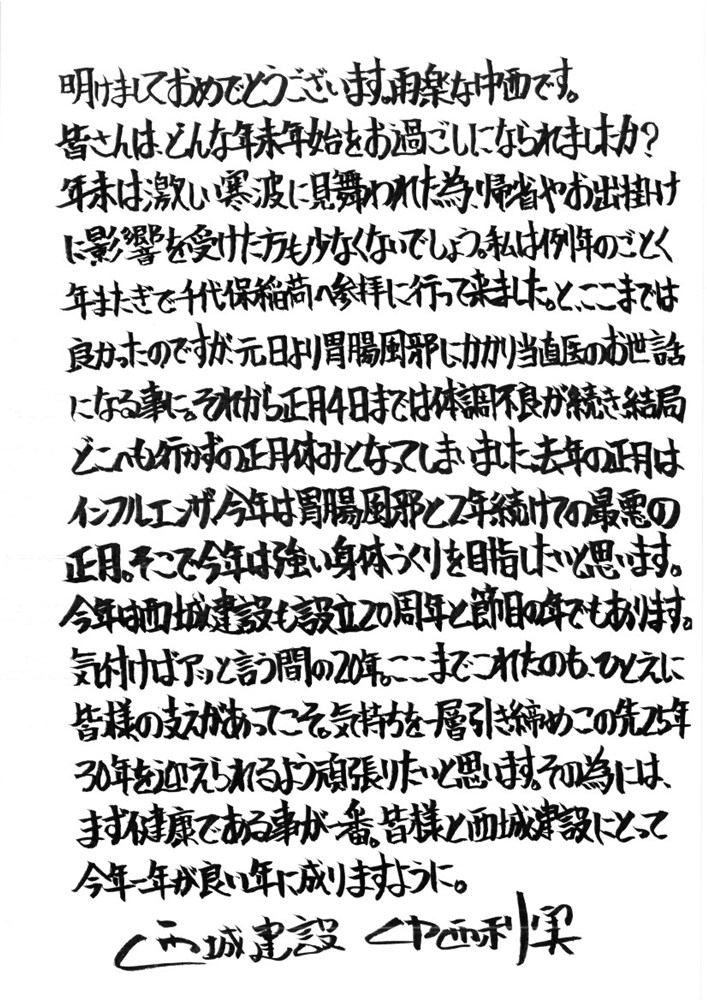 明けましておめでとうございます。雨楽な中西です。
皆さんは、どんな年末年始をお過ごしになられましたか？
年末は激しい寒波に見舞われた為、帰省やお出掛け
に影響を受けた方も少なくないでしょう。私は例年のごとく
年またぎで千代保稲荷へ参拝に行って来ました。と、ここまでは
良かったのですが、元日より胃腸風邪にかかり当直医のお世話
になる事に。それから正月4日までは体調不良が続き結局
どこへも行かずの正月休みとなってしまいました。去年の正月は
インフルエンザ、今年は胃腸風邪と2年続けての最悪の
正月。そこで今年は強い身体づくりを目指したいと思います。
今年は西城建設も設立20周年と節目の年でもあります。
気付けばアッと言う間の20年。ここまでこれたのも、ひとえに
皆様の支えがあってこそ。気持ちを一層引き締めこの先25年
30年を迎えられるよう頑張りたいと思います。その為には、
まず健康である事が一番。皆様と西城建設にとって
今年一年が良い年に成りますように。
西城建設 中西利実